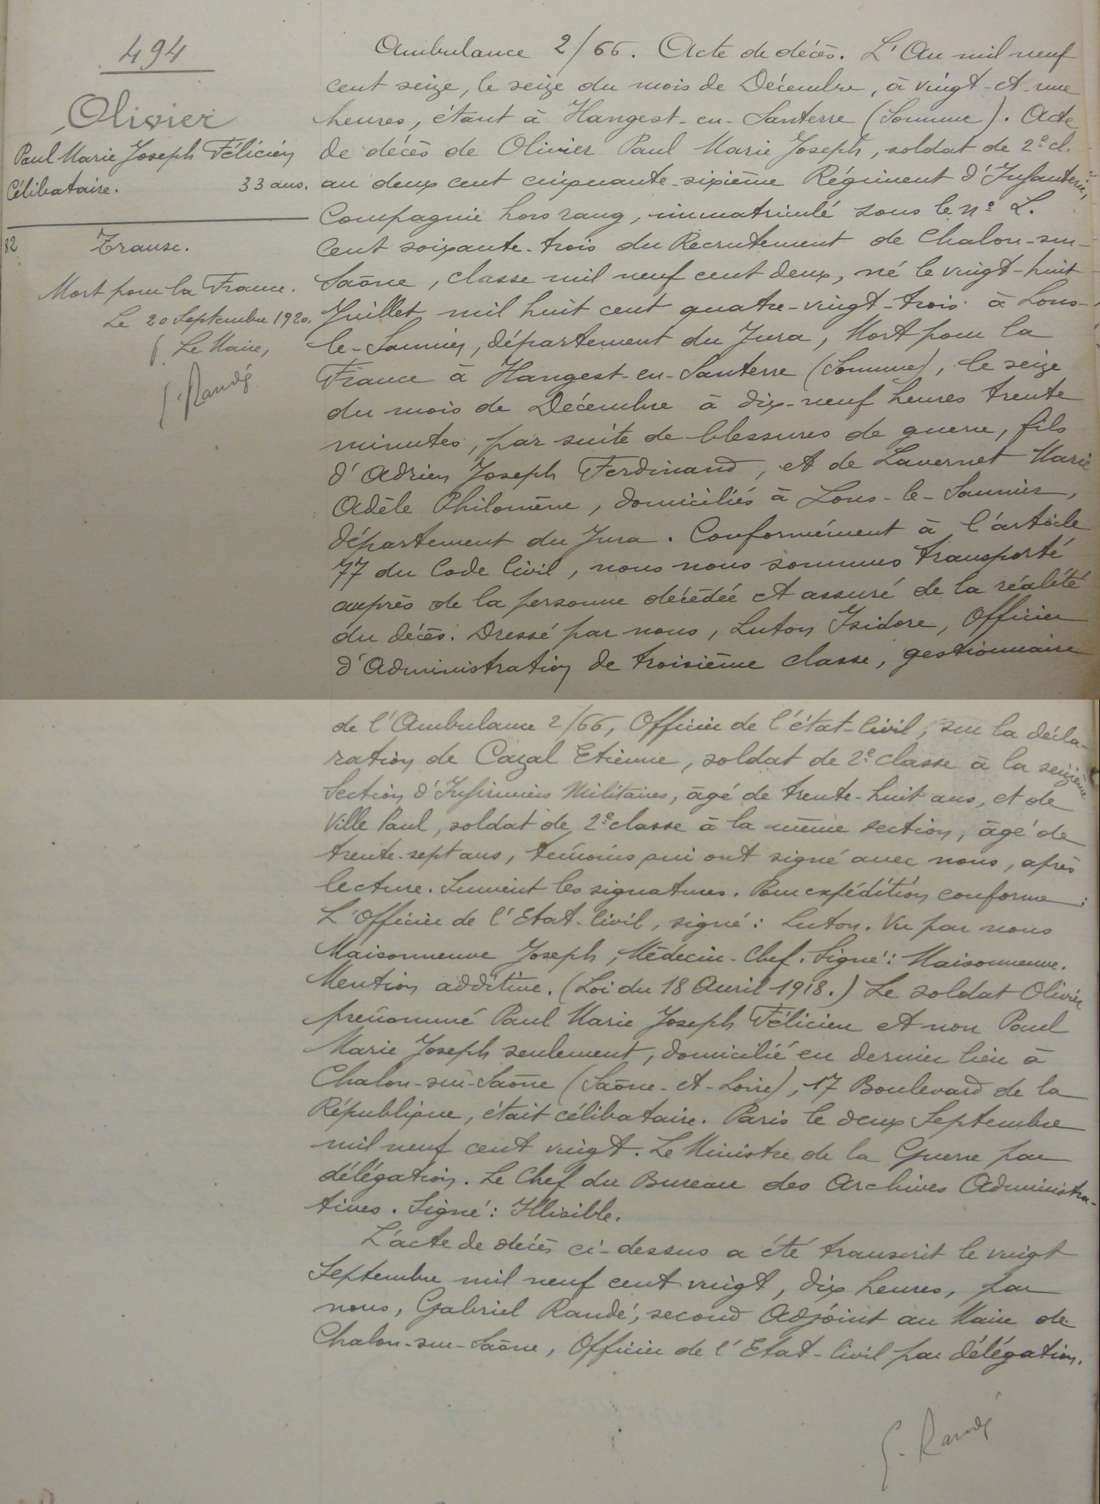 494
Olivier
Paul Marie Joseph Félicien
Célibataire. 33 ans.
Transc.
Mort pour la France.
Le 20 Septembre 1920.
p. Le Maire,
G. Randé
Ambulance 2/66. Acte de décès. L'An mil neuf
cent seize, le seize du mois de Décembre, à vingt-et-une
heures, étant à Hangest-en-Santerre (Somme). Acte
de décès de Olivier Paul Marie Joseph, soldat de 2e cl.
au deux cent cinquante-sixième Régiment d'Infanterie,
Compagnie hors rang, immatriculé sous le no L.
Cent soixante-trois du Recrutement de Chalon-sur-
Saône, classe mil neuf cent deux, né le vingt-huit
Juillet mil huit cent quatre-vingt-trois à Lons-
le-Saunier, département du Jura, Mort pour la
France à Hangest-en-Santerre (Somme), le seize
du mois de Décembre à dix-neuf heures trente
minutes, par suite de blessures de guerre, fils
d'Adrien Joseph Ferdinand, et de Lavernet Marie
Adèle Philomène, domiciliés à Lons-le-Saunier,
département du Jura. Conformément à l'article
77 du Code Civil, nous nous sommes transporté
auprès de la personne décédée et assuré de la réalité
du décès. Dressé par nous, Luton Isidore, Officier
d'Administration de troisième classe, gestionnaire
de l'Ambulance 2/66, Officier de l'état-civil, sur la décla-
ration de Cazal Etienne, soldat de 2e classe à la seizième
Section d'Infirmiers Militaires, âgé de trente-huit ans, et de
Ville Paul, soldat de 2e classe à la même section, âgé de
trente-sept ans, témoins qui ont signé avec nous, après
lecture. Suivent les signatures. Pour expédition conforme:
L'Officier de l'Etat-Civil, signé: Luton. Vu par nous
Maisonneuve Joseph, Médecin-Chef. Signé: Maisonneuve.
Mention additive. (Loi du 18 Avril 1918.) Le soldat Olivier
prénommé Paul Marie Joseph Félicien et non Paul
Marie Joseph seulement, domicilié en dernier lieu à
Chalon-sur-Saône (Saône-et-Loire), 17 Boulevard de la
République, était célibataire. Paris le deux Septembre
mil neuf cent vingt. Le Ministre de la Guerre par
délégation. Le Chef du Bureau des Archives Administra-
tives. Signé: Illisible.
L'acte de décès ci-dessus a été transcrit le vingt
Septembre mil neuf cent vingt, dix heures, par
nous, Gabriel Randé, second Adjoint au Maire de
Chalon-sur-Saône, Officier de l'Etat-Civil par délégation.
G. Randé